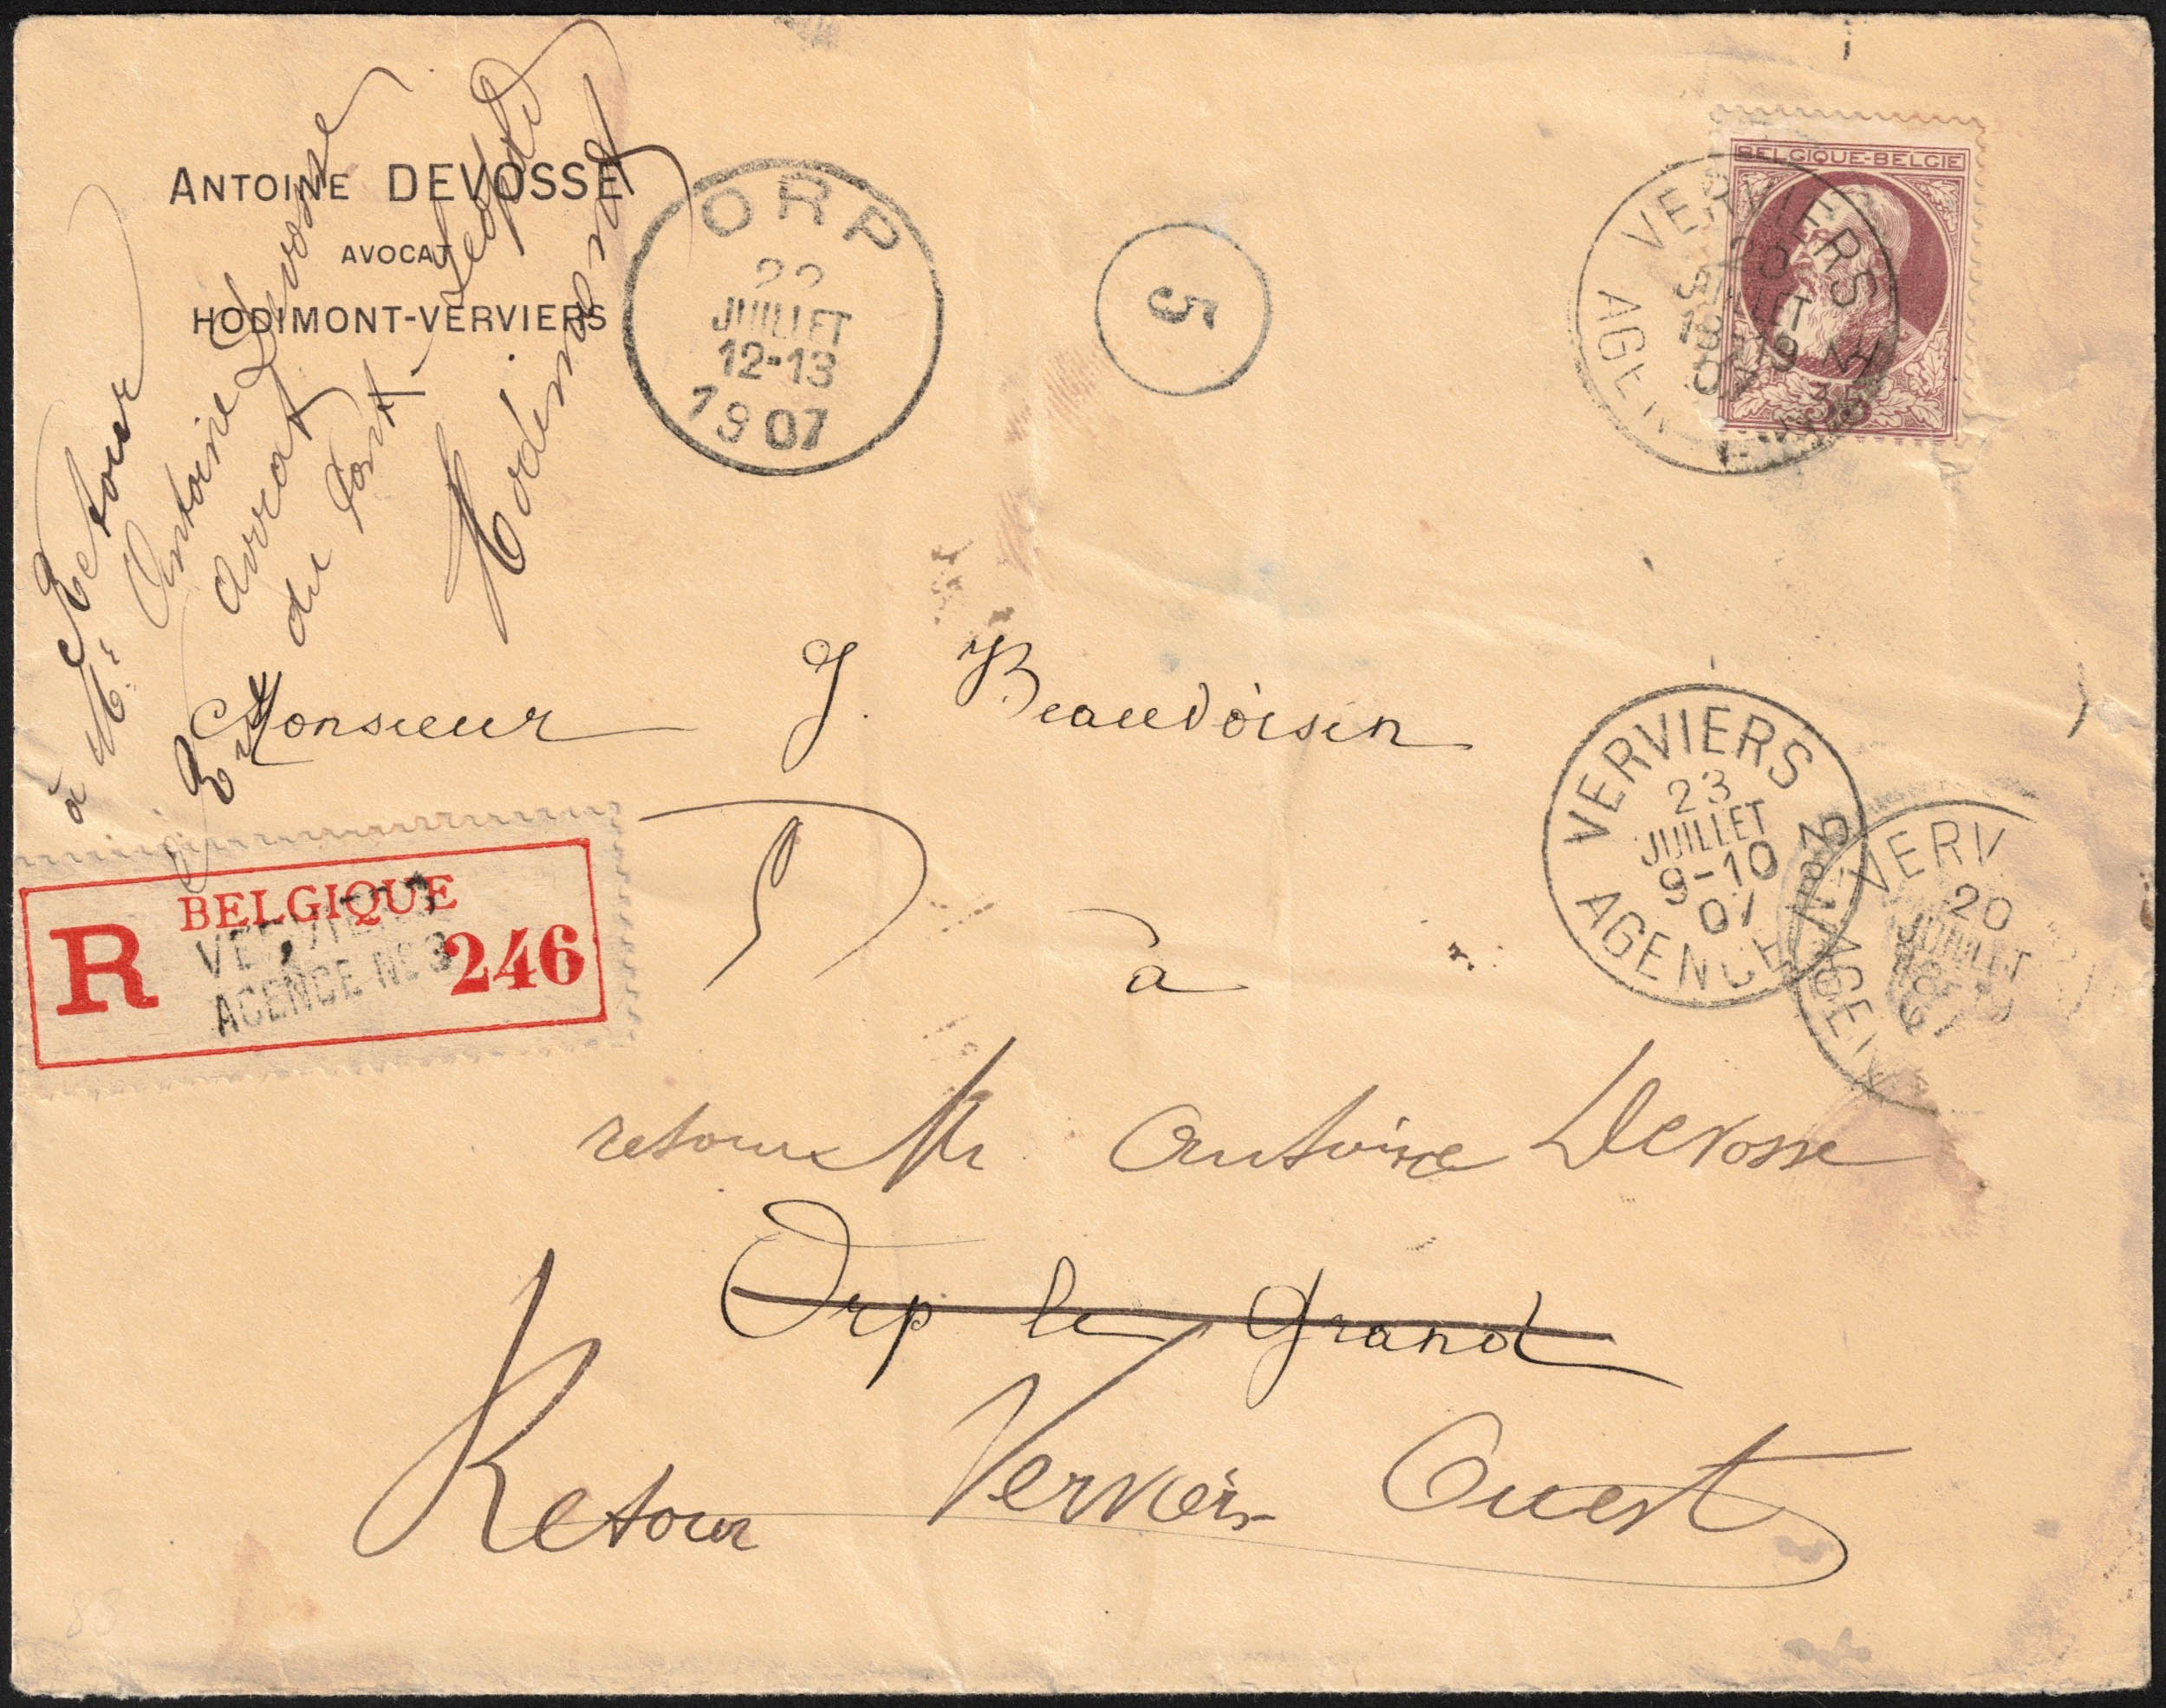 ANTOINE DEVOSSE
AVOCAT
HODIMONT-VERVIERS
Retour
à Mr
Antoine Devosse
avocat
Rue
du Pont Léopold
Hodimont
ORP
22
JUILLET
12-13
1907
5
BELGIQUE-BELGIE
35
VERVIERS
20
JUILLET
18-19
07
AGEN
Monsieur J. Beaudoisin
à
VERVIERS
23
JUILLET
9-10
07
AGENCE
VERV
20
JUILLET
18-19
07
AGEN
BELGIQUE
R
VERVIERS
AGENCE No 3
246
retour Mr Antoine Devosse
Orp le Grand
Retour Verviers Ouest
83